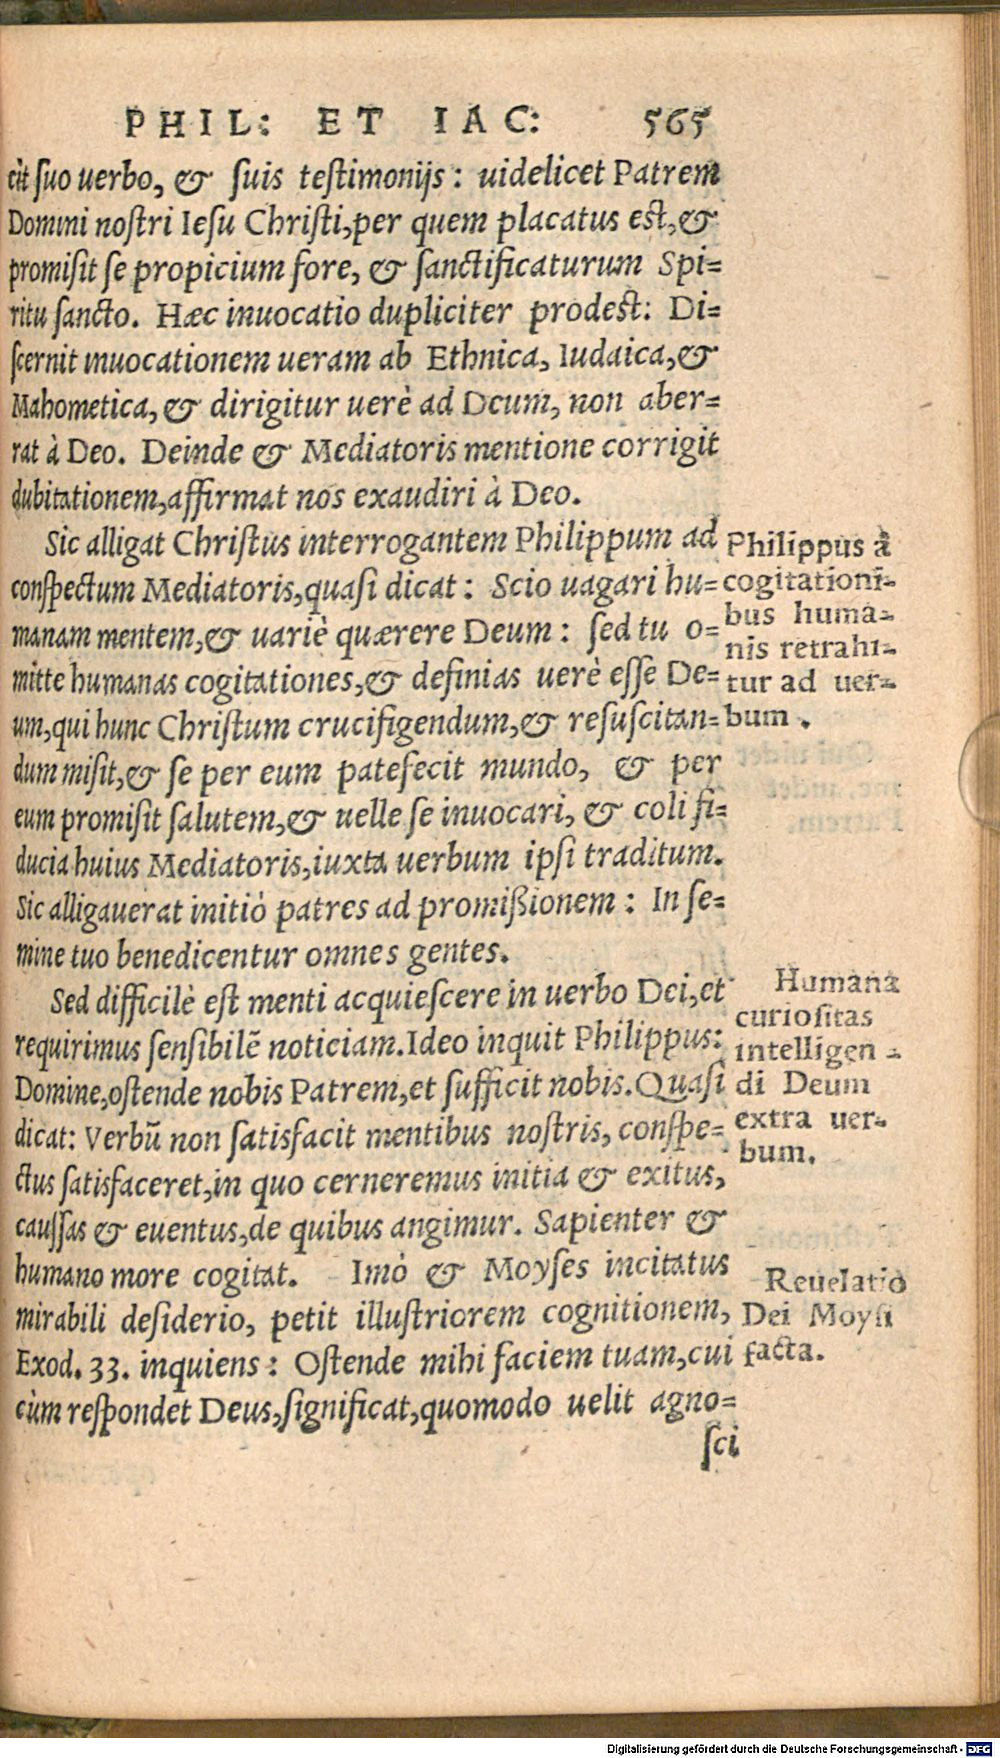 PHIL: ET IAC: 565
cit suo uerbo, & suis testimonijs: uidelicet Patrem
Domini nostri Iesu Christi, per quem placatus est, &
promisit se propicium fore, & sanctificaturum Spi=
ritu sancto. Hæc inuocatio dupliciter prodest: Di=
scernit inuocationem ueram ab Ethnica, Iudaica, &
Mahometica, & dirigitur uerè ad Deum, non aber=
rat à Deo. Deinde & Mediatoris mentione corrigit
dubitationem, affirmat nos exaudiri à Deo.
Sic alligat Christus interrogantem Philippum ad
conspectum Mediatoris, quasi dicat: Scio uagari hu=
manam mentem, & uariè quærere Deum: sed tu o=
mitte humanas cogitationes, & definias uerè esse De=
um, qui hunc Christum crucifigendum, & resuscitan=
dum misit, & se per eum patefecit mundo, & per
eum promisit salutem, & uelle se inuocari, & coli fi=
ducia huius Mediatoris, iuxta uerbum ipsi traditum.
Sic alligauerat initiò patres ad promißionem: In se=
mine tuo benedicentur omnes gentes.
Sed difficilè est menti acquiescere in uerbo Dei, et
requirimus sensibilē noticiam. Ideo inquit Philippus:
Domine, ostende nobis Patrem, et sufficit nobis. Quasi
dicat: Verbū non satisfacit mentibus nostris, conspe=
ctus satisfaceret, in quo cerneremus initia & exitus,
caussas & euentus, de quibus angimur. Sapienter &
humano more cogitat. Imò & Moyses incitatus
mirabili desiderio, petit illustriorem cognitionem,
Exod. 33. inquiens: Ostende mihi faciem tuam, cui
cùm respondet Deus, significat, quomodo uelit agno=
sci
Philippus à
cogitationi=
bus huma=
nis retrahi=
tur ad uer=
bum.
Humana
curiositas
intelligen=
di Deum
extra uer=
bum.
Reuelatio
Dei Moysi
facta.
Digitalisierung gefördert durch die Deutsche Forschungsgemeinschaft - DFG